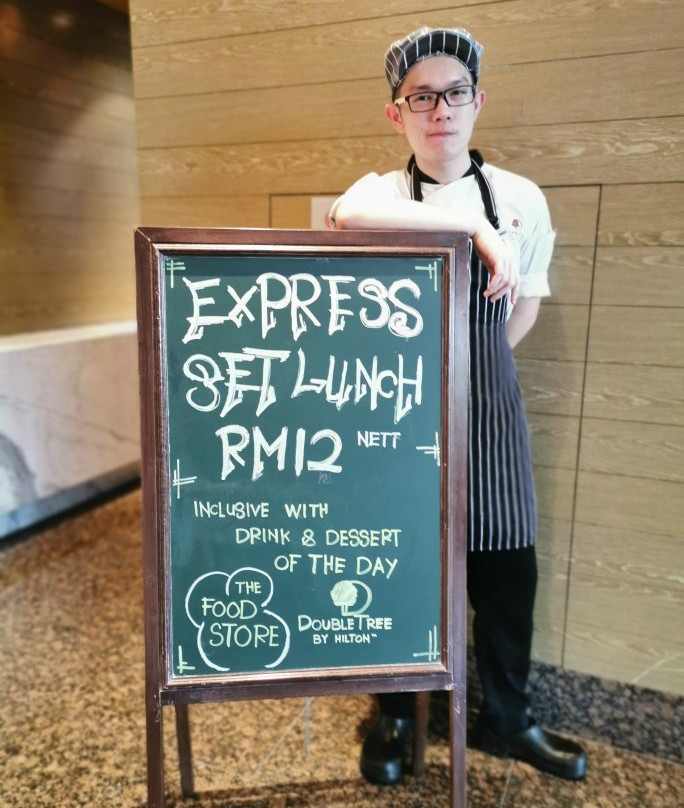 EXPRESS
SET LUNCH
RM12 NETT
INCLUSIVE WITH
DRINK & DESSERT
OF THE DAY
THE
FOOD
STORE
DOUBLETREE
BY HILTON™